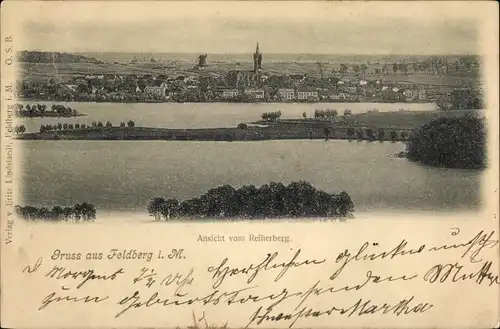 Verlag v. Fritz Lindstaedt, Feldberg i. M. G. S. B.
Ansicht vom Reiherberg.
Gruss aus Feldberg i. M.
Morgens Uhr herzlichen Glückwunsch
zum Geburtstag senden Mutter
Martha